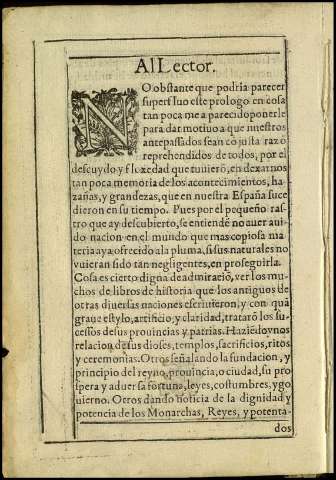 Al Lector.
NO obstante que podria parecer
superfluo este prologo en cosa
tan poca me a parecido ponerle
para dar motiuo a que nuestros
antepassados sean cõ justa razõ
reprehendidos de todos, por el
descuydo y floxedad que tuuierõ, en dexarnos
tan poca memoria de los acontecimientos, ha-
zañas, y grandezas, que en nuestra España suce
dieron en su tiempo. Pues por el pequeño ras-
tro que ay descubierto, se entiende no auer aui-
do nacion en el mundo que mas copiosa ma
teria aya ofrecido a la pluma, si sus naturales no
vuieran sido tan negligentes, en proseguirla.
Cosa es cierto digna de admiraciõ, ver los mu-
chos de libros de historia que los antiguos de
otras diuersas naciones escriuieron, y con quã
graue estylo, artificio, y claridad, tratarõ los su-
cessos de sus prouincias y patrias. Haziẽdo vnos
relacion de sus dioses, templos, sacrificios, ritos
y ceremonias. Otros señalando la fundacion, y
principio del reyno, prouincia, o ciudad, su pro
spera y aduersa fortuna, leyes, costumbres, y go
uierno. Otros dando noticia de la dignidad y
potencia de los Monarchas, Reyes, y potenta-
dos